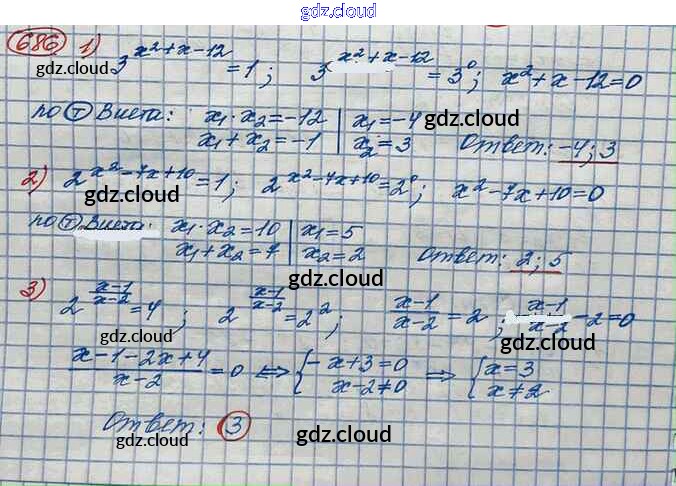 gdz.cloud
gdz.cloud
686 1) 3^{x²+x-12} = 1; 3^{x²+x-12} = 3⁰; x²+x-12=0
gdz.cloud
по Т Виета: x₁·x₂=-12 | x₁=-4
gdz.cloud
x₁+x₂=-1 | x₂=3 Ответ: -4; 3
gdz.cloud
2) 2^{x²-7x+10}=1; 2^{x²-7x+10}=2⁰; x²-7x+10=0
gdz.cloud
по Т Виета: x₁·x₂=10 | x₁=5
x₁+x₂=7 | x₂=2 Ответ: 2; 5
gdz.cloud
3) 2^{(x-1)/(x-2)}=4; 2^{(x-1)/(x-2)}=2²; (x-1)/(x-2)=2; (x-1)/(x-2)-2=0
gdz.cloud
gdz.cloud
(x-1-2x+4)/(x-2)=0 ⇔ { -x+3=0 ⇒ { x=3
x-2≠0 x≠2
Ответ: 3
gdz.cloud
gdz.cloud